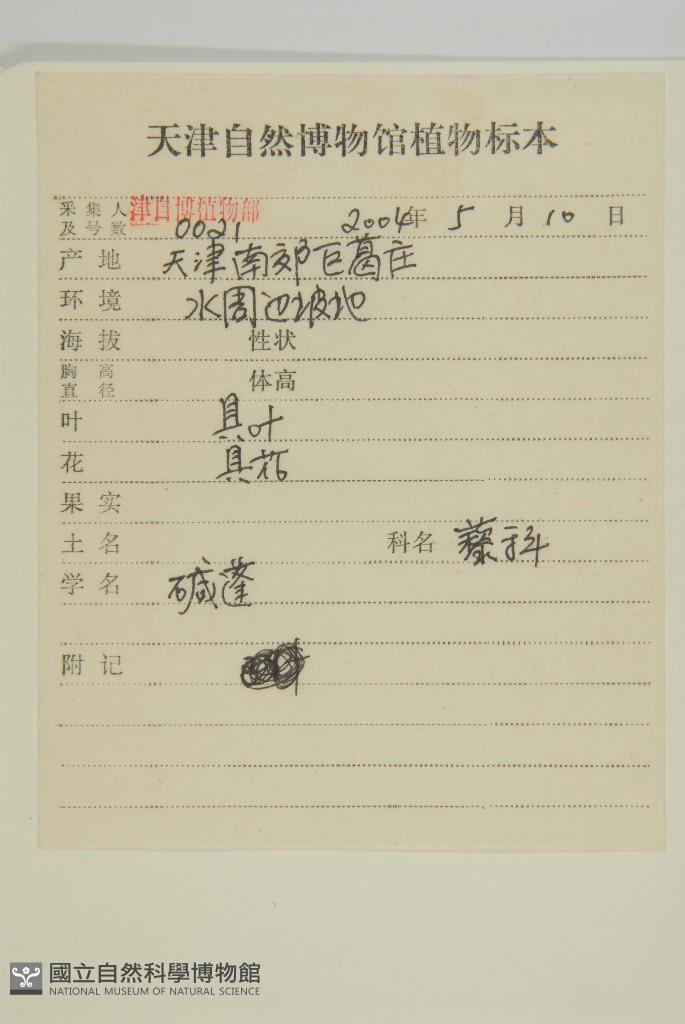 天津自然博物馆植物标本
采集人 津自博植物部
及号数 0021 2004年 5 月 10 日
产地 天津南郊巨葛庄
环境 水周边坡地
海拔 性状
胸高 体高
直径
叶 具叶
花 具花
果实
土名 科名 藜科
学名 碱蓬
附记
國立自然科學博物館
NATIONAL MUSEUM OF NATURAL SCIENCE